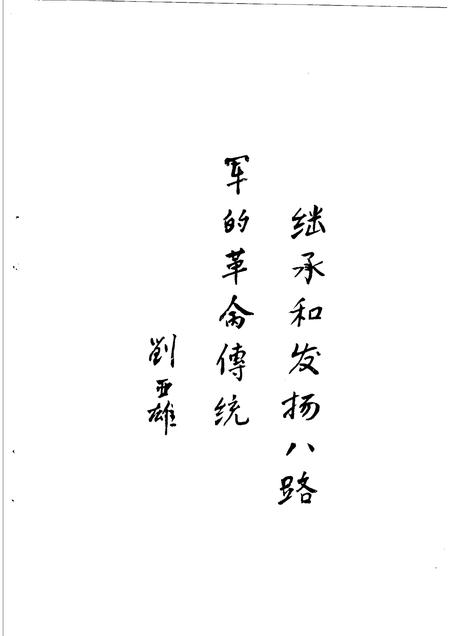 继承和发扬八路
军的革命傳统
劉亚雄